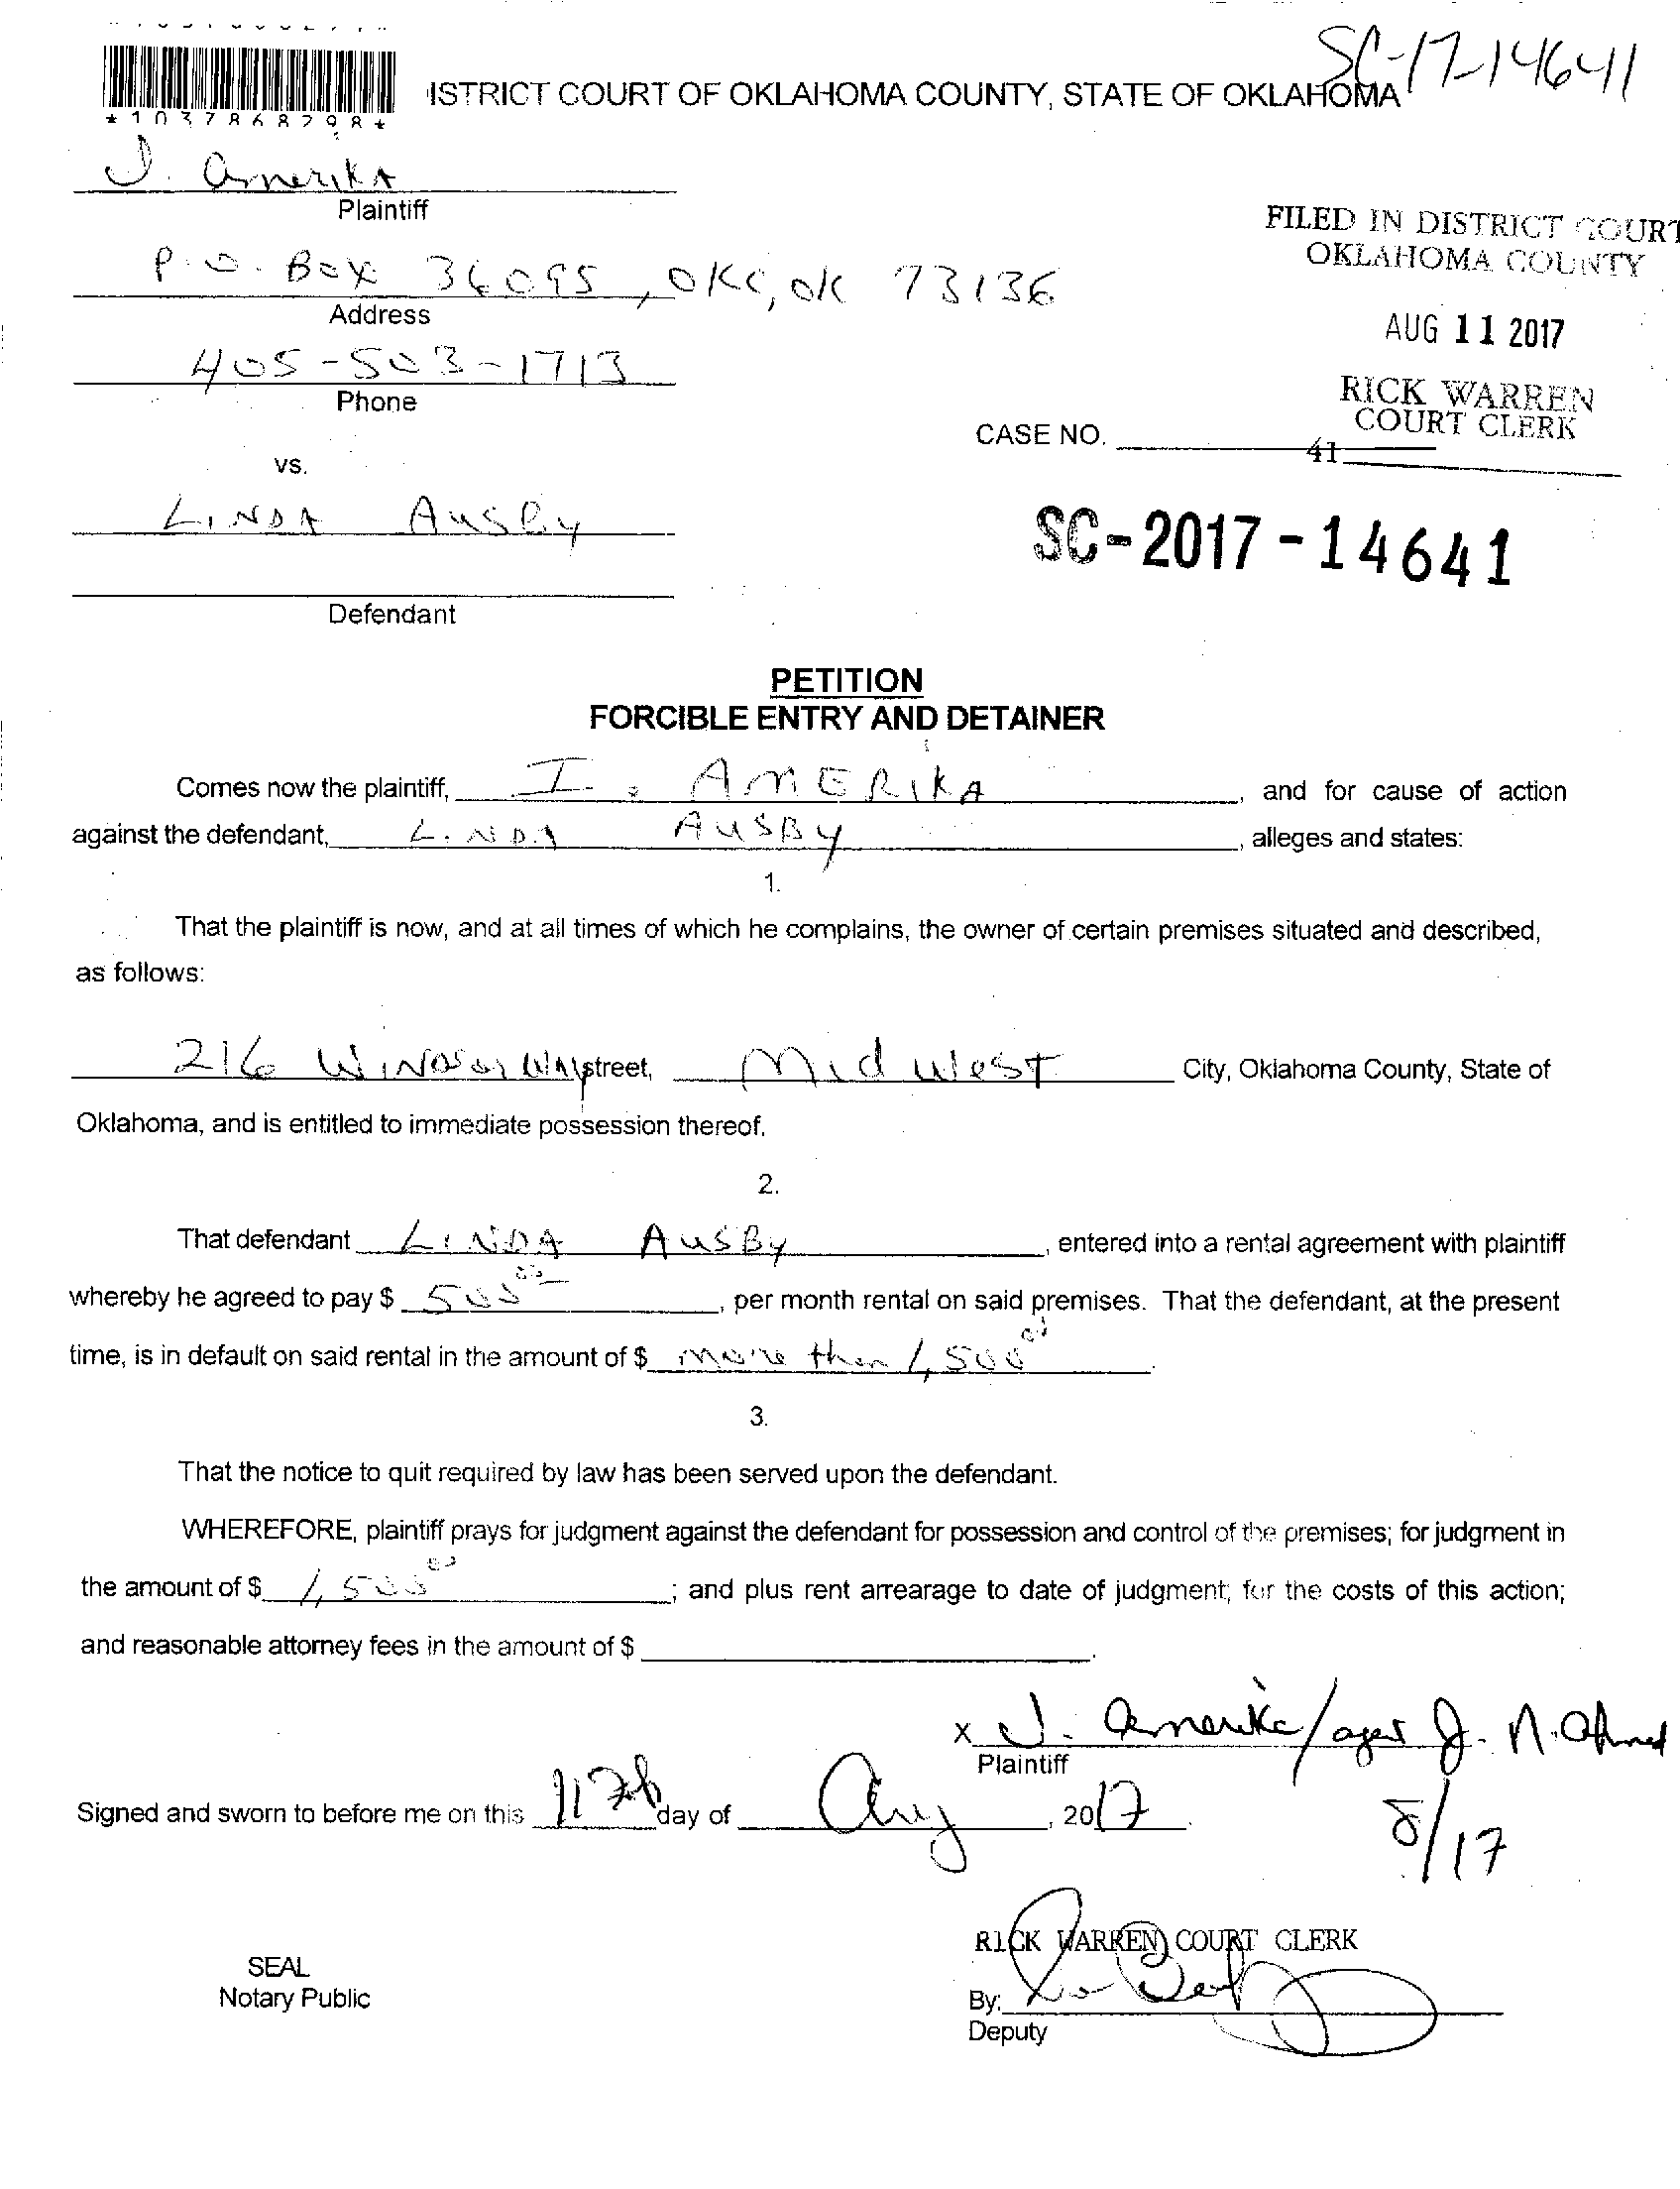 SC-17-14641
ISTRICT COURT OF OKLAHOMA COUNTY, STATE OF OKLAHOMA
*1037868298*
I. Amerika
Plaintiff
P.O. Box 36095, OKC, OK 73136
Address
405-503-1713
Phone
FILED IN DISTRICT COURT
OKLAHOMA COUNTY
AUG 11 2017
RICK WARREN
COURT CLERK
41
CASE NO.
vs.
LINDA AUSBy
Defendant
SC-2017-14641
PETITION
FORCIBLE ENTRY AND DETAINER
Comes now the plaintiff, I. AMERIKA, and for cause of action
against the defendant, LINDA AUSBY, alleges and states:
1.
That the plaintiff is now, and at all times of which he complains, the owner of certain premises situated and described,
as follows:
216 WINDSOR WAY street, Midwest City, Oklahoma County, State of
Oklahoma, and is entitled to immediate possession thereof.
2.
That defendant LINDA AUSBY, entered into a rental agreement with plaintiff
whereby he agreed to pay $ 500 00, per month rental on said premises. That the defendant, at the present
time, is in default on said rental in the amount of $ more than 1,500 00.
3.
That the notice to quit required by law has been served upon the defendant.
WHEREFORE, plaintiff prays for judgment against the defendant for possession and control of the premises; for judgment in
the amount of $ 1,500 00; and plus rent arrearage to date of judgment; for the costs of this action;
and reasonable attorney fees in the amount of $ .
x I. Amerika/agent J. N. Ahmed
Plaintiff
Signed and sworn to before me on this 11th day of Aug, 2017.
8/17
RICK WARREN COURT CLERK
SEAL
Notary Public
By:
Deputy